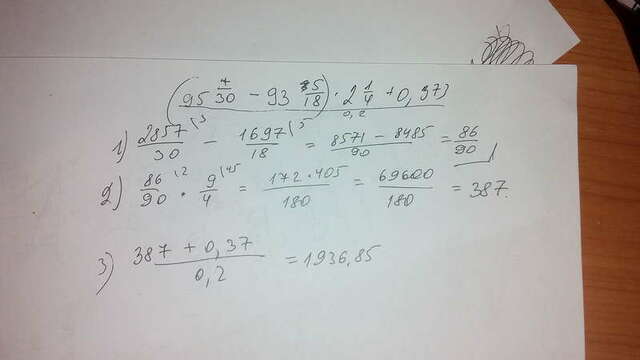 (95 7/30 - 93 5/18) · 2 1/4 + 0,373
0,2
1) 2857/30 (3 - 1697/18 (5 = 8571 - 8485/90 = 86/90
2) 86/90 (2 · 9/4 (45 = 172 · 405/180 = 69600/180 = 387.
3) 387 + 0,37/0,2 = 1936,85